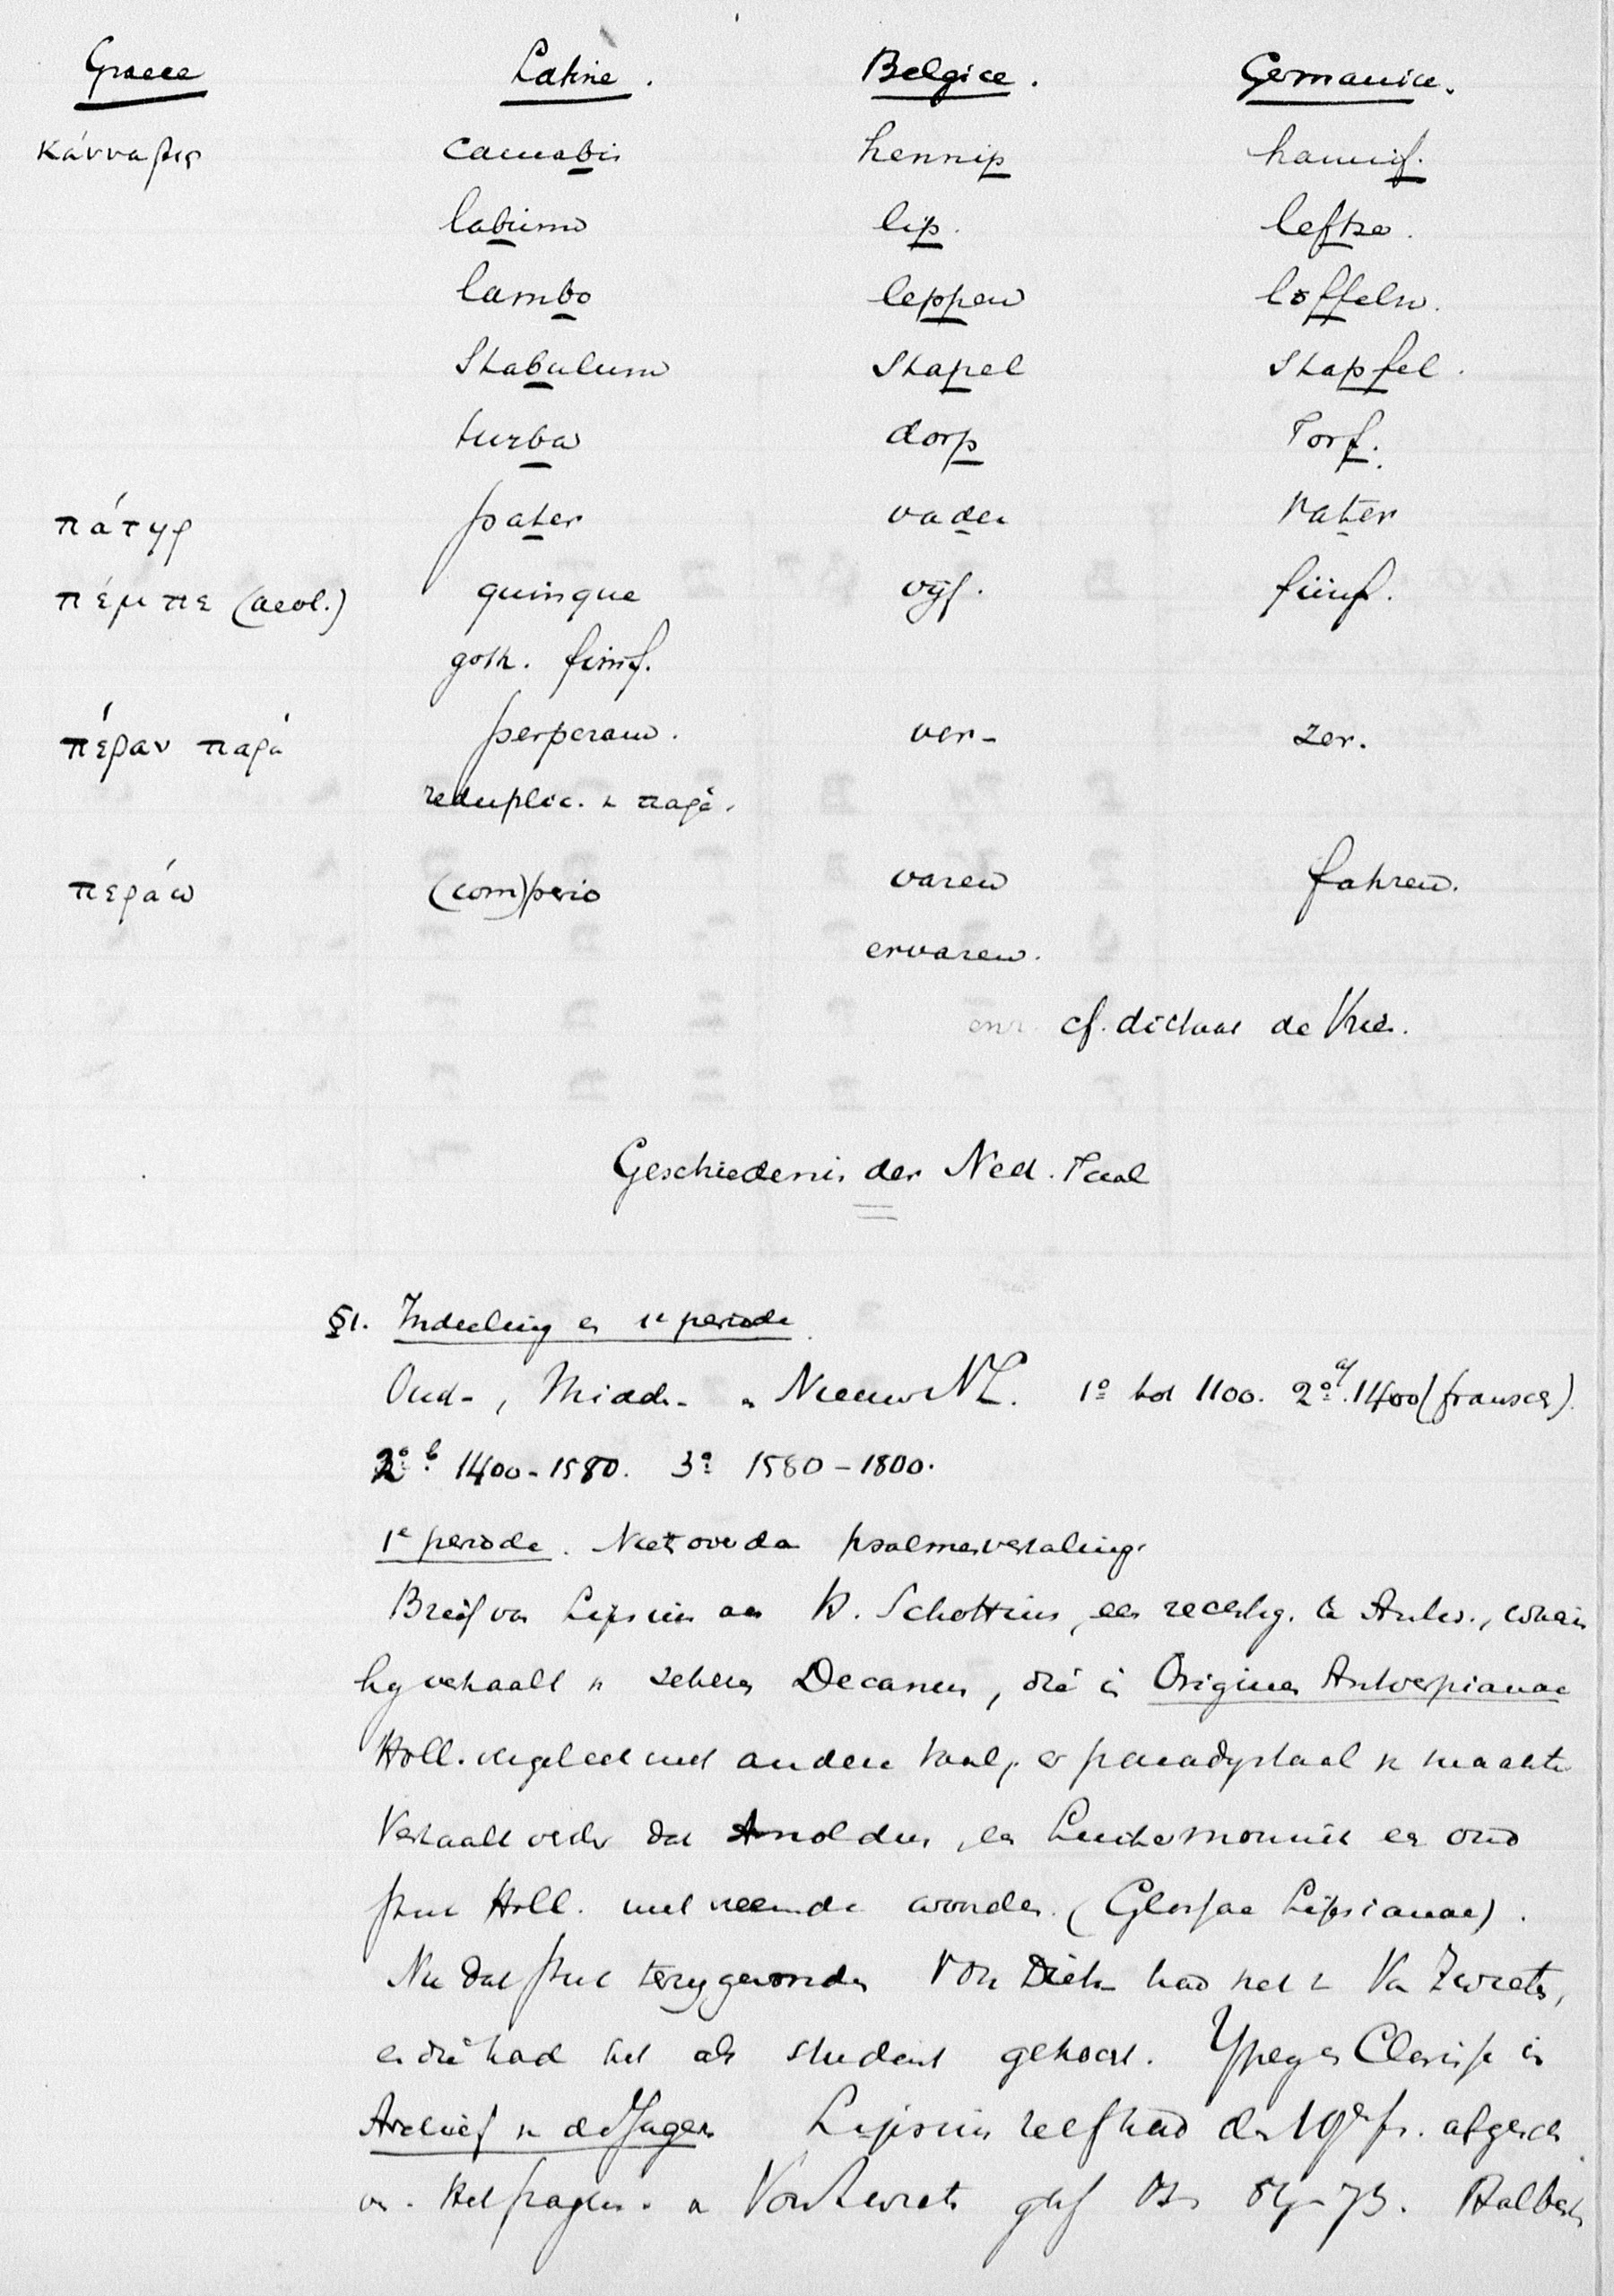 Graece Latine. Belgice. Germanice.
κάνναβις cannabis hennip hannif.
labium lip. leftze.
lambo leppen löffeln.
Stabulum Stapel Stapfel.
turba dorp Torf.
πάτηρ pater vader Vater
πέμπε (aeol.) quinque vijf. fünf.
goth. fimf.
πέραν παρά perperam. ver- zer.
reduplic. v παρά.
περάω (com)perio varen fahren.
ervaren.
cf. dictaat de Vries.
Geschiedenis der Ned. Taal
§1. Indeeling en 1e periode
Oud-, Midd.- en Nieuw NL. 1o tot 1100. 2o a/ 1400 (fransch).
2o b 1400-1580. 3o 1580-1800.
1e periode. psalmenvertaling.
Brief van Lipsius aan H. Schottius, een rechtsg. te Antw., waarin
hij verhaalt v zekeren Decanus, die in Origines Antwerpianae
Holl. vergeleek met andere taal, er paradijstaal v maakte
Verhaalt verder dat Arnoldus, een Luikermonnik een oud
stuk Holl. met vreemde woorden. (Glossae Lipsianae).
Nu dat stuk teruggevonden Von Diez had het v Von Zwrets,
en die had het als student gekocht. Ypey en Clarisse in
Archief v de Jager Lipsius zelf had de 19e ps. afgeschr
v. Het fragm. v gaf Ps 54-73. Halberts